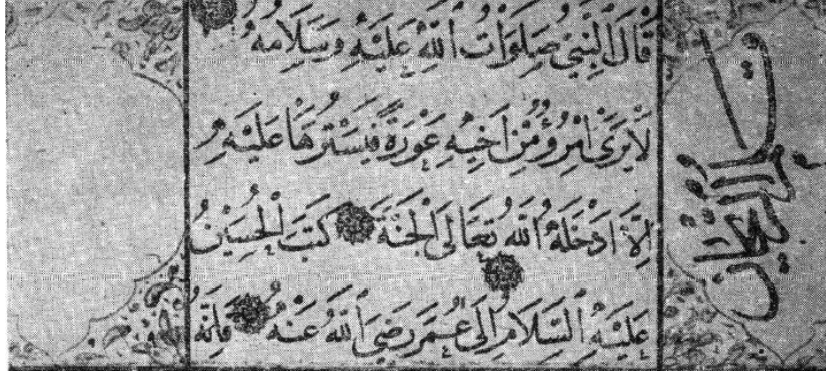 قَالَ ٱلنَّبِيُّ صَلَوَاتُ ٱللّٰهِ عَلَيْهِ وَسَلَامُهُ
لَا يَرَى امْرُؤٌ مِنْ اَخِيهِ عَوْرَةً فَيَسْتُرُهَا عَلَيْهِ
اِلَّا اَدْخَلَهُ ٱللّٰهُ تَعَالَى الْجَنَّةَ كَتَبَ الْحُسَيْنُ
عَلَيْهِ ٱلسَّلَامُ اِلَى عُمَرَ رَضِيَ ٱللّٰهُ عَنْهُ فَاِنَّهُ